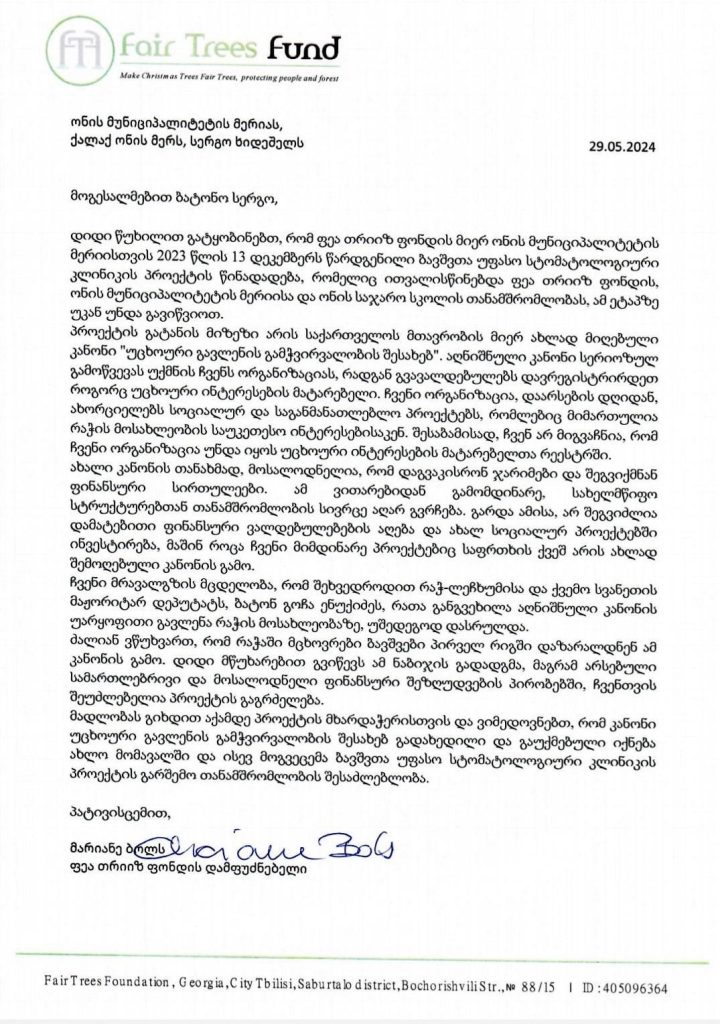 Fair Trees Fund
Make Christmas Trees Fair Trees, protecting people and forest
ონის მუნიციპალიტეტის მერიას,
ქალაქ ონის მერს, სერგო ხიდეშელს
29.05.2024
მოგესალმებით ბატონო სერგო,
დიდი წუხილით გატყობინებთ, რომ ფეა თრიიზ ფონდის მიერ ონის მუნიციპალიტეტის
მერიისთვის 2023 წლის 13 დეკემბერს წარდგენილი ბავშვთა უფასო სტომატოლოგიური
კლინიკის პროექტის წინადადება, რომელიც ითვალისწინებდა ფეა თრიიზ ფონდის,
ონის მუნიციპალიტეტის მერიისა და ონის საჯარო სკოლის თანამშრომლობას, ამ ეტაპზე
უკან უნდა გავიწვიოთ.
პროექტის გატანის მიზეზი არის საქართველოს მთავრობის მიერ ახლად მიღებული
კანონი "უცხოური გავლენის გამჭვირვალობის შესახებ". აღნიშნული კანონი სერიოზულ
გამოწვევას უქმნის ჩვენს ორგანიზაციას, რადგან გვავალდებულებს დავრეგისტრირდეთ
როგორც უცხოური ინტერესების მატარებელი. ჩვენი ორგანიზაცია, დაარსების დღიდან,
ახორციელებს სოციალურ და საგანმანათლებლო პროექტებს, რომლებიც მიმართულია
რაჭის მოსახლეობის საუკეთესო ინტერესებისაკენ. შესაბამისად, ჩვენ არ მიგვაჩნია, რომ
ჩვენი ორგანიზაცია უნდა იყოს უცხოური ინტერესების მატარებელთა რეესტრში.
ახალი კანონის თანახმად, მოსალოდნელია, რომ დაგვაკისრონ ჯარიმები და შეგვიქმნან
ფინანსური სირთულეები. ამ ვითარებიდან გამომდინარე, სახელმწიფო
სტრუქტურებთან თანამშრომლობის სივრცე აღარ გვრჩება. გარდა ამისა, არ შეგვიძლია
დამატებითი ფინანსური ვალდებულებების აღება და ახალ სოციალურ პროექტებში
ინვესტირება, მაშინ როცა ჩვენი მიმდინარე პროექტებიც საფრთხის ქვეშ არის ახლად
შემოღებული კანონის გამო.
ჩვენი მრავალგზის მცდელობა, რომ შეხვედროდით რაჭ-ლეჩხუმისა და ქვემო სვანეთის
მაჟორიტარ დეპუტატს, ბატონ გოჩა ენუქიძეს, რათა განგვეხილა აღნიშნული კანონის
უარყოფითი გავლენა რაჭის მოსახლეობაზე, უშედეგოდ დასრულდა.
ძალიან ვწუხვართ, რომ რაჭაში მცხოვრები ბავშვები პირველ რიგში დაზარალდნენ ამ
კანონის გამო. დიდი მწუხარებით გვიწევს ამ ნაბიჯის გადადგმა, მაგრამ არსებული
სამართლებრივი და მოსალოდნელი ფინანსური შეზღუდვების პირობებში, ჩვენთვის
შეუძლებელია პროექტის გაგრძელება.
მადლობას გიხდით აქამდე პროექტის მხარდაჭერისთვის და ვიმედოვნებთ, რომ კანონი
უცხოური გავლენის გამჭვირვალობის შესახებ გადახედილი და გაუქმებული იქნება
ახლო მომავალში და ისევ მოგვეცემა ბავშვთა უფასო სტომატოლოგიური კლინიკის
პროექტის გარშემო თანამშრომლობის შესაძლებლობა.
პატივისცემით,
მარიანე ბოლს
ფეა თრიიზ ფონდის დამფუძნებელი
FairTrees Foundation, Georgia, City Tbilisi, Saburtalo district, Bochorishvili Str., № 88/15 | ID : 405096364